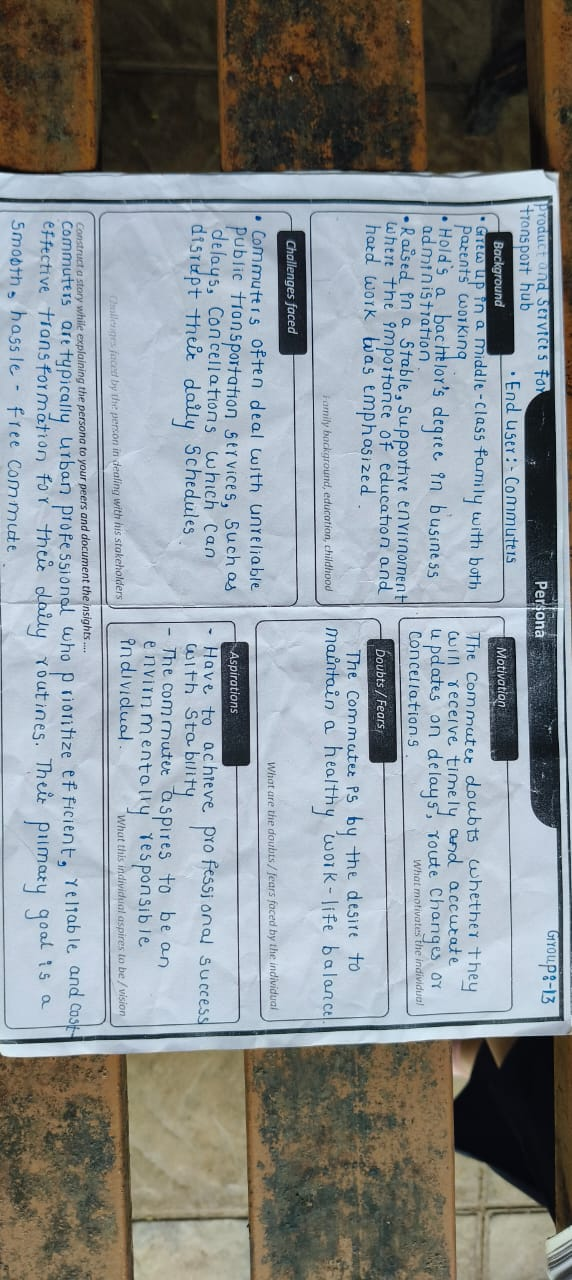 product and services for
transport hub
Persona
Group:-13
• End user:- Commuters
Background
• Grew up in a middle-class family with both
parents working
• Hold's a bachelor's degree in business
administration
• Raised in a stable, supportive envirnoment
where the importance of education and
hard work was emphasized.
Family background, education, childhood
Challenges faced
• Commuters often deal with unreliable
public transportation services, such as
delays, Concellations which can
disrupt their daily schedules
Challenges faced by the person in dealing with his stakeholders
Motivation
The Commuter doubts whether they
will receive timely and accurate
updates on delays, route changes or
Concellations.
What motivates the individual
Doubts / Fears
The Commuter is by the desire to
maintain a healthy work-life balance.
What are the doubts / fears faced by the individual
Aspirations
- Have to achieve professional success
with stability
- The commuter aspires to be an
envirnmentally responsible
individual.
What this individual aspires to be / vision
Construct a story while explaining the persona to your peers and document the insights....
Commuters are typically urban professional who prioritize efficient, reliable and cost-
effective transformation for their daily routines. Their primary goal is a
smooth, hassle-free Commute.